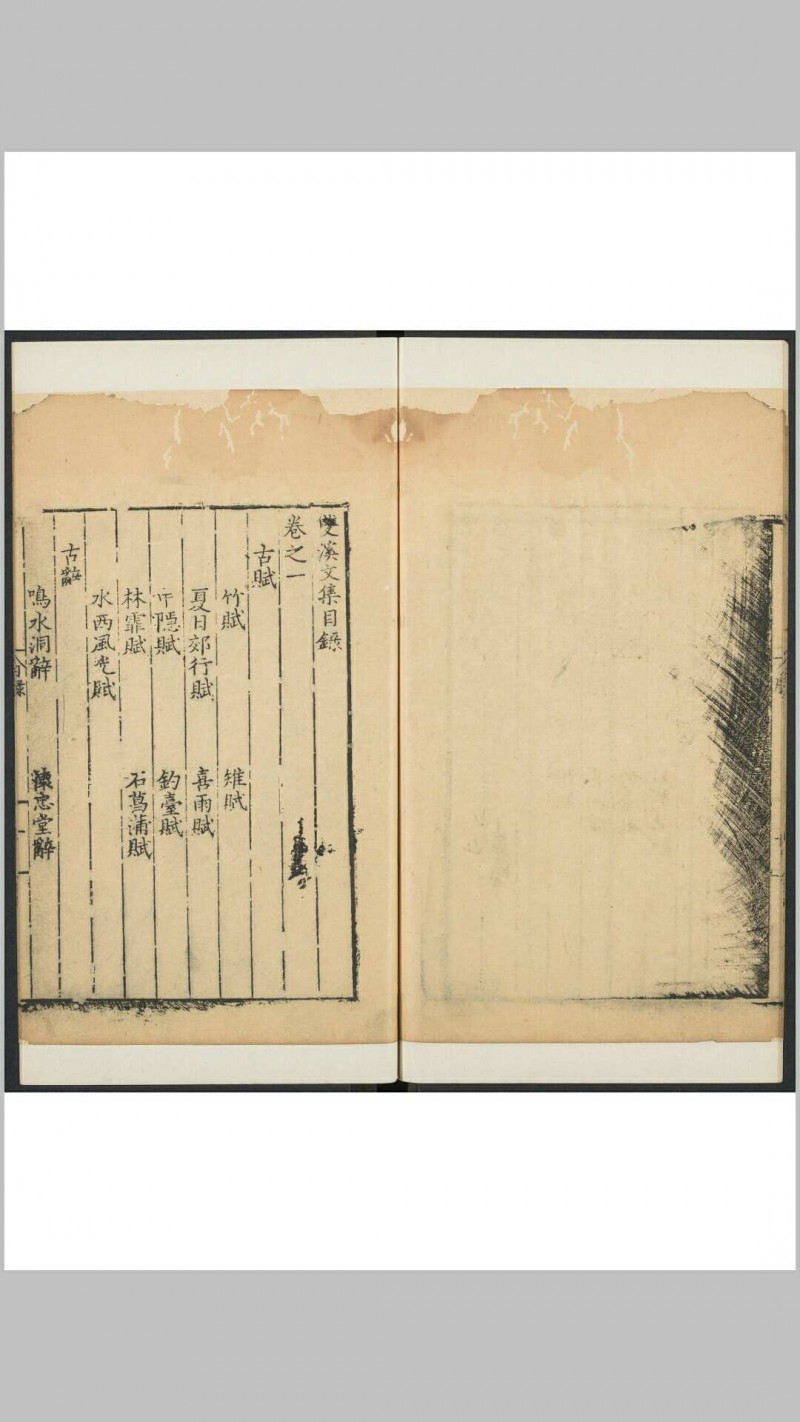 雙溪文集目錄
卷之一
古賦
竹賦 雉賦
夏日郊行賦 喜雨賦
中隱賦 釣臺賦
林霏賦 石菖蒲賦
水西風光賦
古辭
鳴水洞辭 懷忠堂辭
目錄